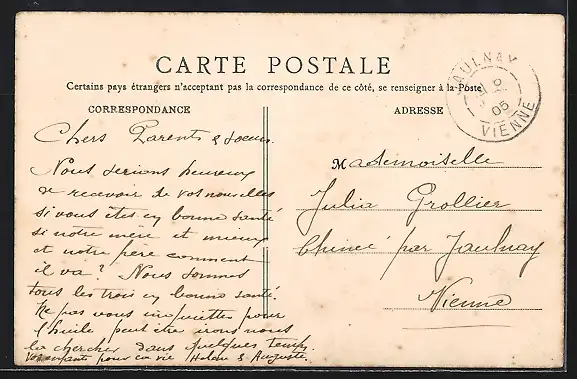 CARTE POSTALE
Certains pays étrangers n'acceptant pas la correspondance de ce côté, se renseigner à la Poste
CORRESPONDANCE
ADRESSE
Chers Parents & soeur.
Nous serions heureux
de recevoir de vos nouvelles
si vous êtes en bonne santé
si notre mère et mieux
et notre père comment
il va? Nous sommes
tous les trois en bonne santé.
Ne pas vous inquiettes pour
l'huile peut être irons nous
la chercher dans quelques temps.
Vos enfants pour la vie & Auguste.
Mademoiselle
Julia Grollier
par Jaulnay
Vienne
JAULNAY
05
VIENNE